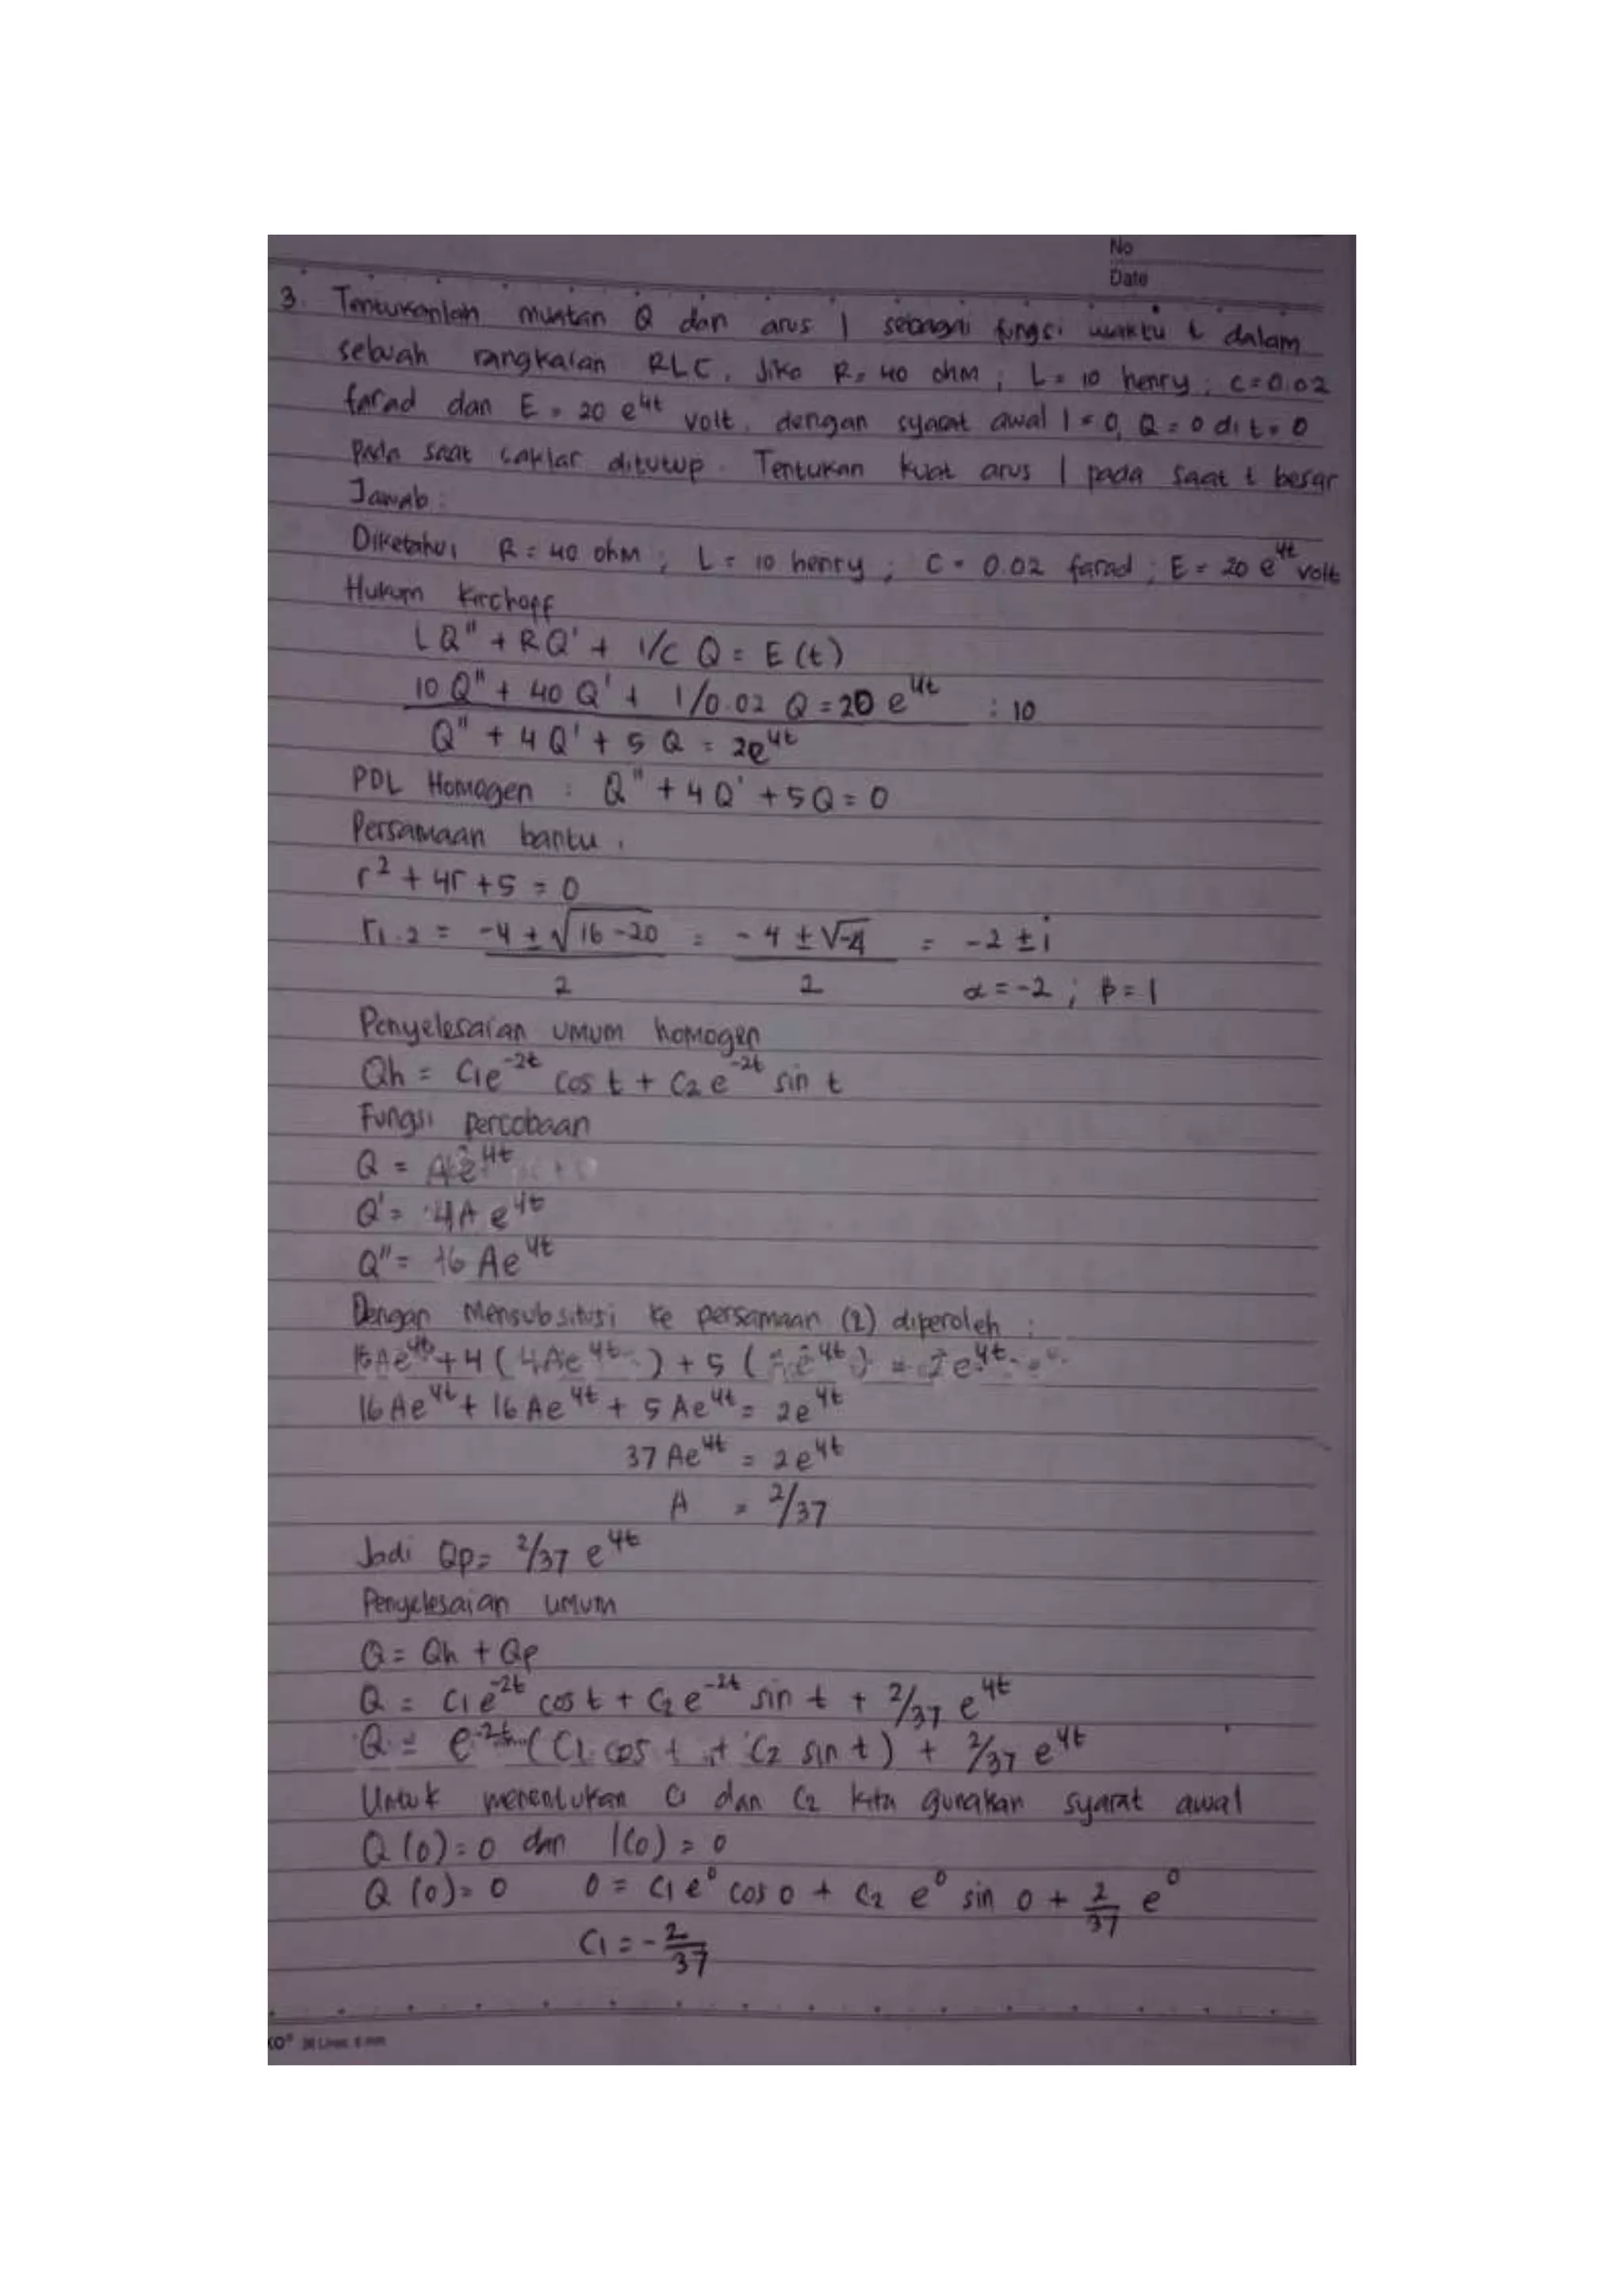 No
Date
3. Tentukanlah muatan Q dan arus I sebagai fungsi waktu t dalam
sebuah rangkaian RLC, Jika R = 40 ohm ; L = 10 henry ; C = 0.02
farad dan E = 20 e^4t volt, dengan syarat awal I = 0, Q = 0 di t = 0
Pada saat saklar ditutup. Tentukan kuat arus I pada saat t besar
Jawab :
Diketahui R = 40 ohm ; L = 10 henry ; C = 0.02 farad ; E = 20 e^4t volt
Hukum Kirchoff
LQ" + RQ' + 1/C Q = E (t)
10 Q" + 40 Q' + 1/0.02 Q = 20 e^4t : 10
Q" + 4 Q' + 5 Q = 2e^4t
PDL Homogen : Q" + 4 Q' + 5Q = 0
Persamaan bantu :
r² + 4r + 5 = 0
r1.2 = (-4 ± √16-20)/2 = (-4 ± √-4)/2 = -2 ± i
α = -2 ; β = 1
Penyelesaian umum homogen
Qh = C1e^-2t cos t + C2 e^-2t sin t
Fungsi percobaan
Q = Ae^4t
Q' = 4A e^4t
Q" = 16 Ae^4t
Dengan Mensubsitusi ke persamaan (2) diperoleh :
16Ae^4t + 4 ( 4Ae^4t ) + 5 ( Ae^4t ) = 2e^4t
16 Ae^4t + 16 Ae^4t + 5 Ae^4t = 2e^4t
37 Ae^4t = 2e^4t
A = 2/37
Jadi Qp = 2/37 e^4t
Penyelesaian umum
Q = Qh + Qp
Q = C1e^-2t cos t + C2 e^-2t sin t + 2/37 e^4t
Q = e^-2t (C1 cos t + C2 sin t) + 2/37 e^4t
Untuk menentukan C1 dan C2 kita gunakan syarat awal
Q (0) = 0 dan I(0) = 0
Q (0) = 0 0 = C1 e^0 cos 0 + C2 e^0 sin 0 + 2/37 e^0
C1 = - 2/37